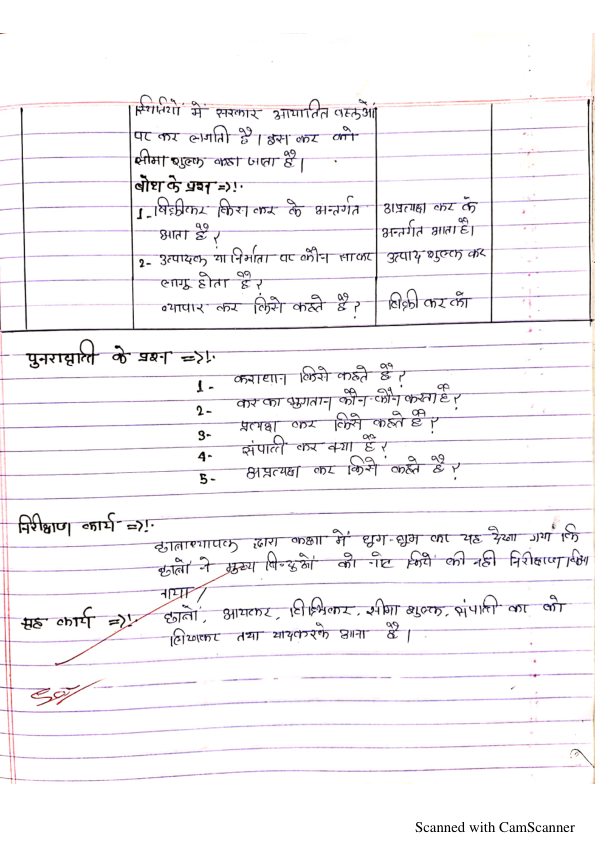 स्थितियों में सरकार आयातित वस्तुओं
पर कर लगाती है। इस कर को
सीमा शुल्क कहा जाता है।
बोध के प्रश्न =>!·
1- बिक्रीकर किस कर के अन्तर्गत आता है?
अप्रत्यक्ष कर के अन्तर्गत आता है।
2- उत्पादक या निर्माता पर कौन सा कर लागू होता है?
उत्पाद शुल्क कर
व्यापार कर किसे कहते है?
बिक्री कर को
पुनरावृति के प्रश्न =>!·
1- कराधान किसे कहते है?
2- कर का भुगतान कौन-कौन करता है?
3- प्रत्यक्ष कर किसे कहते है?
4- संपाती कर क्या है?
5- अप्रत्यक्ष कर किसे कहते है?
निरीक्षण कार्य =>!·
छात्राध्यापक द्वारा कक्षा में घुम-घुम कर यह देखा गया कि
छात्रों ने मुख्य बिन्दुओं को नोट किये की नही निरीक्षण किया
गया।
गृह कार्य =>!·
छात्रों, आयकर, बिक्रिकर, सीमा शुल्क, संपाती कर को
लिखकर तथा यादकरके आना है।
Scanned with CamScanner